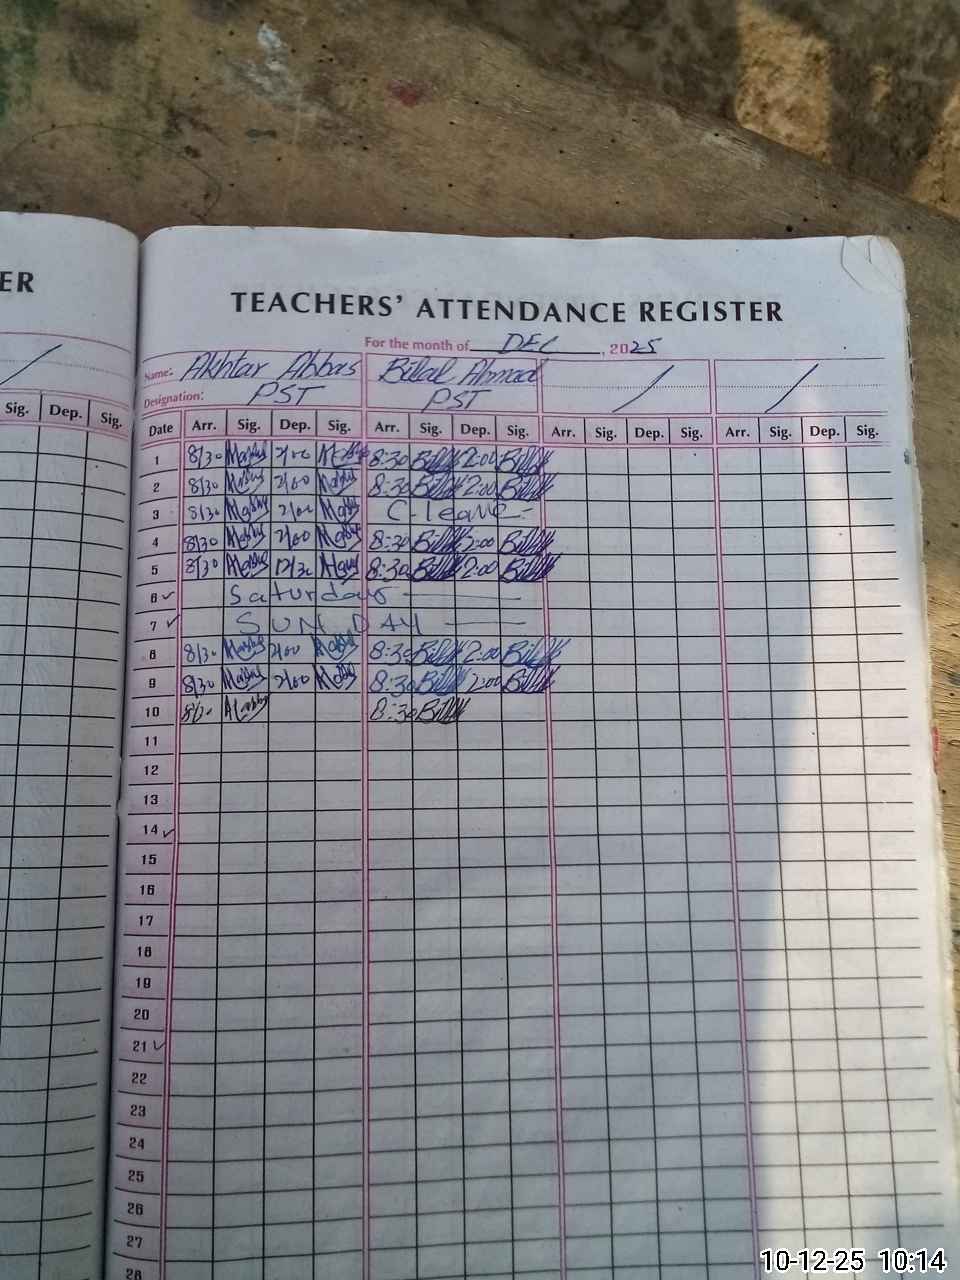 ER
TEACHERS' ATTENDANCE REGISTER
For the month of DEC, 2025
Name: Akhtar Abbas Bilal Ahmad / /
Designation: PST PST
Sig. Dep. Sig.
Date Arr. Sig. Dep. Sig. Arr. Sig. Dep. Sig. Arr. Sig. Dep. Sig. Arr. Sig. Dep. Sig.
1 8/30 2/00 8:30 2:00
2 8/30 2/00 8:30 2:00
3 8/30 2/00 C-leave
4 8/30 2/00 8:30 2:00
5 8/30 12/30 8:30 2:00
6 ✓ Saturday
7 ✓ SUNDAY
8 8/30 2/00 8:30 2:00
9 8/30 2/00 8:30 2:00
10 8/30 8:30
11
12
13
14 ✓
15
16
17
18
19
20
21 ✓
22
23
24
25
26
27
28
10-12-25 10:14